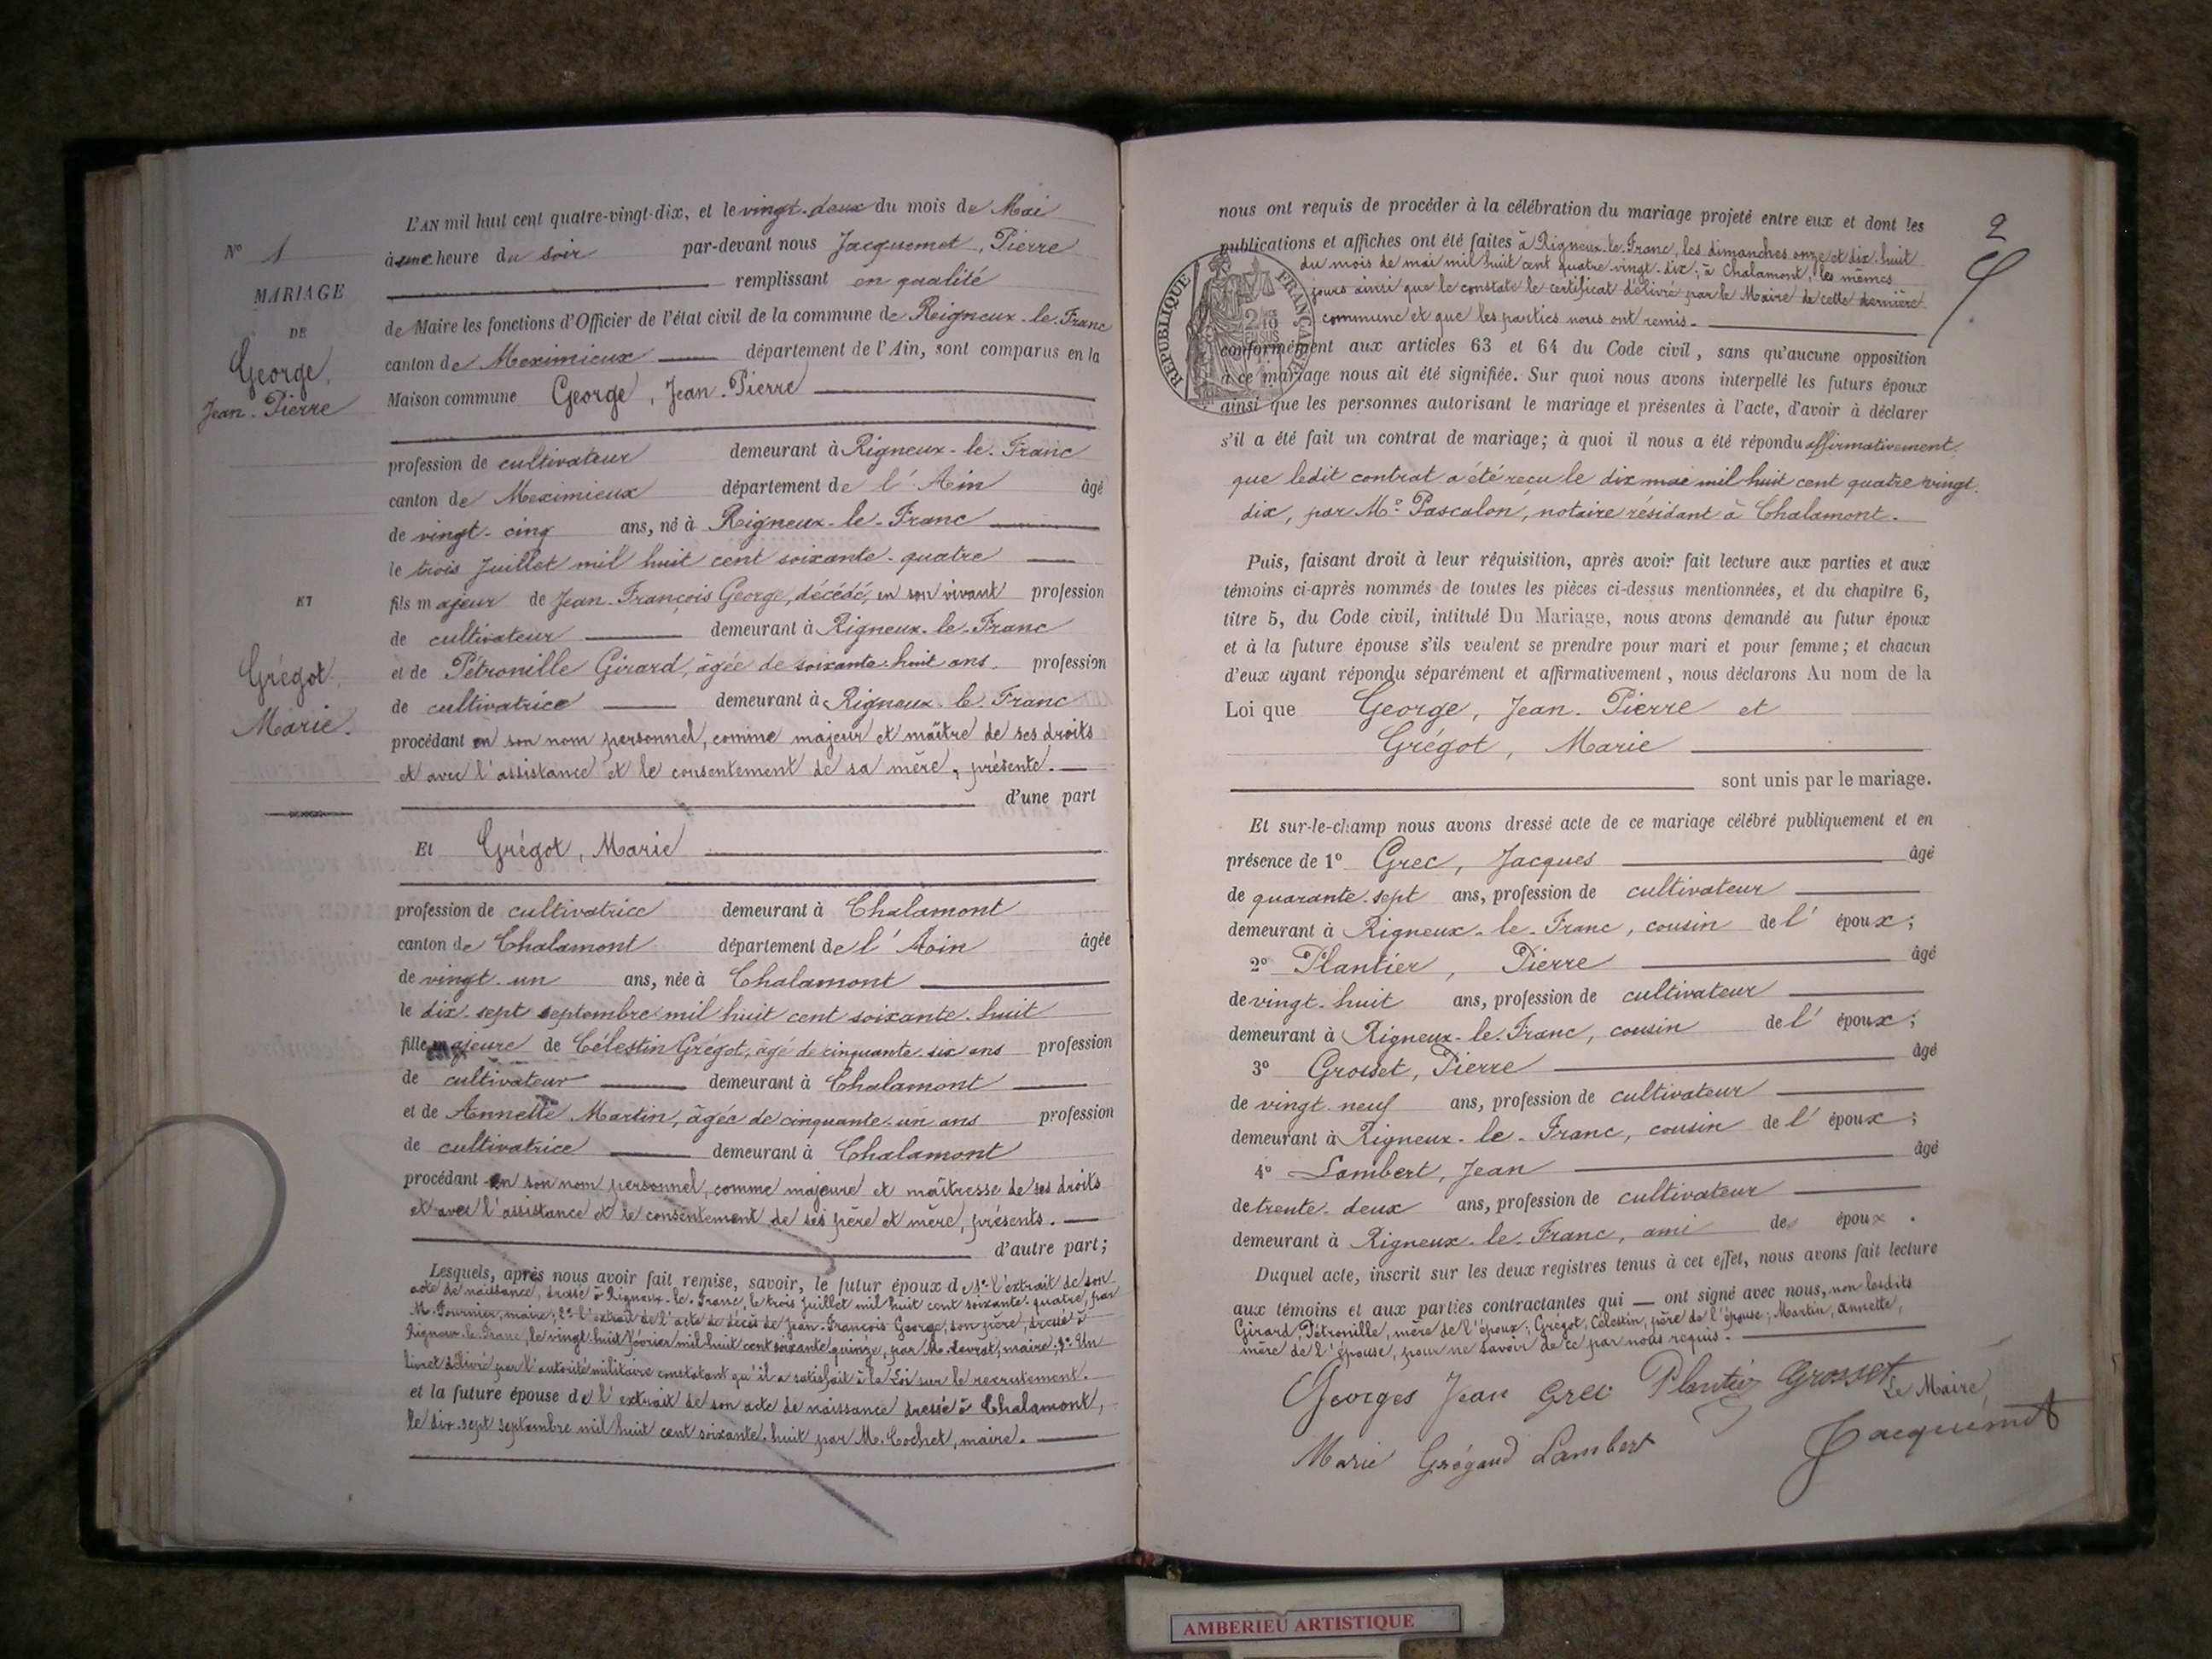 L'AN mil huit cent quatre-vingt-dix, et le vingt-deux du mois de Mai
à une heure du soir par-devant nous Jacquemet, Pierre
remplissant en qualité
de Maire les fonctions d'Officier de l'état civil de la commune de Rigneux-le-Franc
canton de Meximieux département de l'Ain, sont comparus en la
Maison commune George, Jean-Pierre
profession de cultivateur demeurant à Rigneux-le-Franc
canton de Meximieux département de l'Ain âgé
de vingt-cinq ans, né à Rigneux-le-Franc
le trois Juillet mil huit cent soixante-quatre
fils majeur de Jean-François George, décédé, en son vivant profession
de cultivateur demeurant à Rigneux-le-Franc
et de Pétronille Girard, âgée de soixante-huit ans profession
de cultivatrice demeurant à Rigneux-le-Franc
procédant en son nom personnel, comme majeur et maître de ses droits
et avec l'assistance et le consentement de sa mère, présente.
d'une part
Et Grégot, Marie
profession de cultivatrice demeurant à Chalamont
canton de Chalamont département de l'Ain âgée
de vingt-un ans, née à Chalamont
le dix-sept septembre mil huit cent soixante-huit
fille majeure de Célestin Grégot, âgé de cinquante-six ans profession
de cultivateur demeurant à Chalamont
et de Annette Martin, âgée de cinquante-un ans profession
de cultivatrice demeurant à Chalamont
procédant en son nom personnel, comme majeure et maîtresse de ses droits
et avec l'assistance et le consentement de ses père et mère, présents.
d'autre part;
Lesquels, après nous avoir fait remise, savoir, le futur époux de 1° l'extrait de son
acte de naissance, dressé à Rigneux-le-Franc, le trois juillet mil huit cent soixante-quatre, par
M. Fournier, maire; 2° l'extrait de l'acte de décès de Jean-François George, son père, dressé à
Rigneux-le-Franc, le vingt-huit Février mil huit cent soixante quinze, par M. Levrat, maire; 3° Un
livret délivré par l'autorité militaire constatant qu'il a satisfait à la Loi sur le recrutement.
et la future épouse de l'extrait de son acte de naissance dressé à Chalamont,
le dix-sept septembre mil huit cent soixante-huit par M. Cochet, maire.
N° 1
MARIAGE
DE
George,
Jean-Pierre
ET
Grégot,
Marie.
2
nous ont requis de procéder à la célébration du mariage projeté entre eux et dont les
publications et affiches ont été faites à Rigneux-le-Franc, les dimanches onze et dix-huit
du mois de mai mil huit cent quatre-vingt-dix; à Chalamont, les mêmes
jours ainsi que le constate le certificat délivré par le Maire de cette dernière
commune et que les parties nous ont remis.
RÉPUBLIQUE FRANÇAISE
conformément aux articles 63 et 64 du Code civil, sans qu'aucune opposition
à ce mariage nous ait été signifiée. Sur quoi nous avons interpellé les futurs époux
ainsi que les personnes autorisant le mariage et présentes à l'acte, d'avoir à déclarer
s'il a été fait un contrat de mariage; à quoi il nous a été répondu affirmativement
que ledit contrat a été reçu le dix mai mil huit cent quatre vingt-
dix, par Me Pascalon, notaire résidant à Chalamont.
Puis, faisant droit à leur réquisition, après avoir fait lecture aux parties et aux
témoins ci-après nommés de toutes les pièces ci-dessus mentionnées, et du chapitre 6,
titre 5, du Code civil, intitulé Du Mariage, nous avons demandé au futur époux
et à la future épouse s'ils veulent se prendre pour mari et pour femme; et chacun
d'eux ayant répondu séparément et affirmativement, nous déclarons Au nom de la
Loi que George, Jean-Pierre et
Grégot, Marie
sont unis par le mariage.
Et sur-le-champ nous avons dressé acte de ce mariage célébré publiquement et en
présence de 1° Grec, Jacques âgé
de quarante-sept ans, profession de cultivateur
demeurant à Rigneux-le-Franc, cousin de l'époux;
2° Plantier, Pierre âgé
de vingt-huit ans, profession de cultivateur
demeurant à Rigneux-le-Franc, cousin de l'époux;
3° Grosset, Pierre âgé
de vingt-neuf ans, profession de cultivateur
demeurant à Rigneux-le-Franc, cousin de l'époux;
4° Lambert, Jean âgé
de trente-deux ans, profession de cultivateur
demeurant à Rigneux-le-Franc, ami des époux.
Duquel acte, inscrit sur les deux registres tenus à cet effet, nous avons fait lecture
aux témoins et aux parties contractantes qui ont signé avec nous, non lesdits
Girard, Pétronille, mère de l'époux; Grégot, Célestin, père de l'épouse; Martin, Annette,
mère de l'épouse, pour ne savoir de ce par nous requis.
Georges Jean Grec Plantier Grosset Le Maire
Marie Grégaud Lambert Jacquemet
AMBERIEU ARTISTIQUE